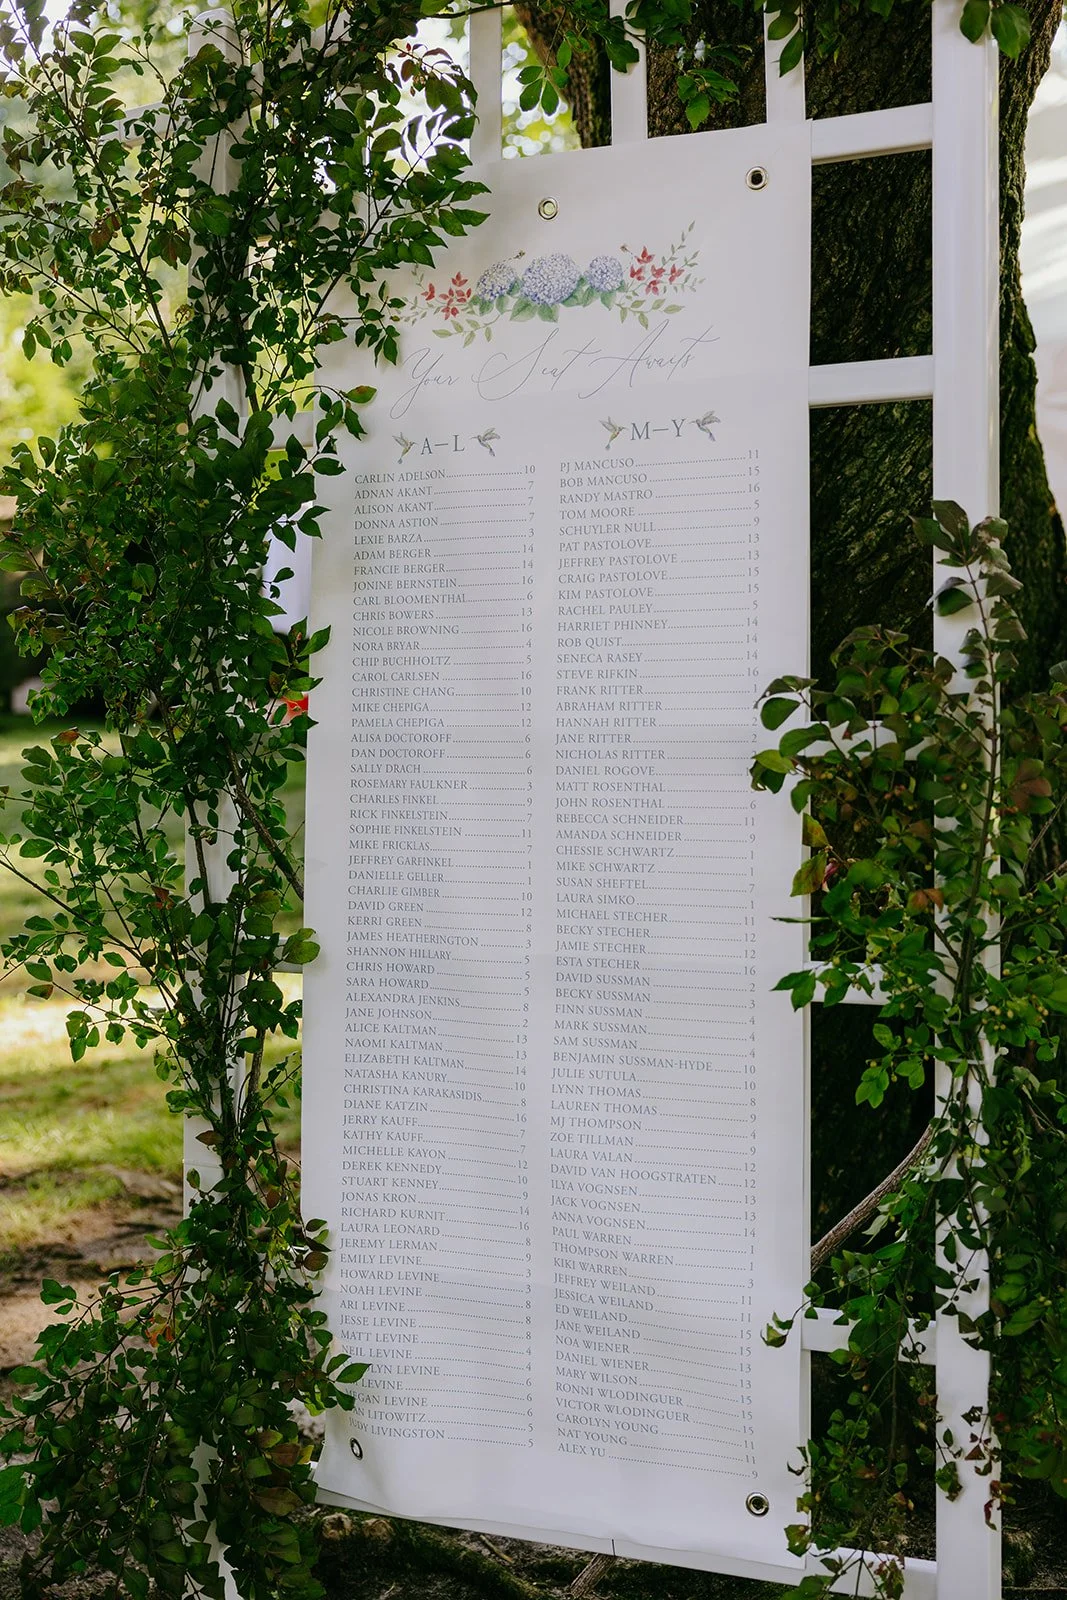 Your Seat Awaits
A–L
CARLIN ADELSON 10
ADNAN AKANT 7
ALISON AKANT 7
DONNA ASTION 7
LEXIE BARZA 3
ADAM BERGER 14
FRANCIE BERGER 14
JONINE BERNSTEIN 16
CARL BLOOMENTHAL 6
CHRIS BOWERS 13
NICOLE BROWNING 16
NORA BRYAR 4
CHIP BUCHHOLTZ 5
CAROL CARLSEN 16
CHRISTINE CHANG 10
MIKE CHEPIGA 12
PAMELA CHEPIGA 12
ALISA DOCTOROFF 6
DAN DOCTOROFF 6
SALLY DRACH 6
ROSEMARY FAULKNER 3
CHARLES FINKEL 9
RICK FINKELSTEIN 7
SOPHIE FINKELSTEIN 11
MIKE FRICKLAS 7
JEFFREY GARFINKEL 1
DANIELLE GELLER 1
CHARLIE GIMBER 10
DAVID GREEN 12
KERRI GREEN 8
JAMES HEATHERINGTON 3
SHANNON HILLARY 5
CHRIS HOWARD 5
SARA HOWARD 5
ALEXANDRA JENKINS 8
JANE JOHNSON 2
ALICE KALTMAN 13
NAOMI KALTMAN 13
ELIZABETH KALTMAN 14
NATASHA KANURY 10
CHRISTINA KARAKASIDIS 8
DIANE KATZIN 16
JERRY KAUFF 7
KATHY KAUFF 7
MICHELLE KAYON 12
DEREK KENNEDY 10
STUART KENNEY 9
JONAS KRON 14
RICHARD KURNIT 16
LAURA LEONARD 8
JEREMY LERMAN 9
EMILY LEVINE 3
HOWARD LEVINE 3
NOAH LEVINE 8
ARI LEVINE 8
JESSE LEVINE 8
MATT LEVINE 4
NEIL LEVINE 4
LEVINE 6
LEVINE 6
MEGAN LEVINE 6
LITOWITZ 5
JUDY LIVINGSTON 5
M–Y
PJ MANCUSO 11
BOB MANCUSO 15
RANDY MASTRO 16
TOM MOORE 5
SCHUYLER NULL 9
PAT PASTOLOVE 13
JEFFREY PASTOLOVE 13
CRAIG PASTOLOVE 15
KIM PASTOLOVE 15
RACHEL PAULEY 5
HARRIET PHINNEY 14
ROB QUIST 14
SENECA RASEY 14
STEVE RIFKIN 16
FRANK RITTER 1
ABRAHAM RITTER
HANNAH RITTER 2
JANE RITTER 2
NICHOLAS RITTER
DANIEL ROGOVE
MATT ROSENTHAL
JOHN ROSENTHAL 6
REBECCA SCHNEIDER 11
AMANDA SCHNEIDER 9
CHESSIE SCHWARTZ 1
MIKE SCHWARTZ 1
SUSAN SHEFTEL 7
LAURA SIMKO 1
MICHAEL STECHER 11
BECKY STECHER 12
JAMIE STECHER 12
ESTA STECHER 16
DAVID SUSSMAN 2
BECKY SUSSMAN 3
FINN SUSSMAN 4
MARK SUSSMAN 4
SAM SUSSMAN 4
BENJAMIN SUSSMAN-HYDE 10
JULIE SUTULA 10
LYNN THOMAS 8
LAUREN THOMAS 9
MJ THOMPSON 4
ZOE TILLMAN 9
LAURA VALAN 12
DAVID VAN HOOGSTRATEN 12
ILYA VOGNSEN 13
JACK VOGNSEN 13
ANNA VOGNSEN 14
PAUL WARREN 1
THOMPSON WARREN 1
KIKI WARREN 3
JEFFREY WEILAND 11
JESSICA WEILAND 11
ED WEILAND 15
JANE WEILAND 15
NOA WIENER 13
DANIEL WIENER 13
MARY WILSON 15
RONNI WLODINGUER 15
VICTOR WLODINGUER 15
CAROLYN YOUNG 11
NAT YOUNG 11
ALEX YU 9